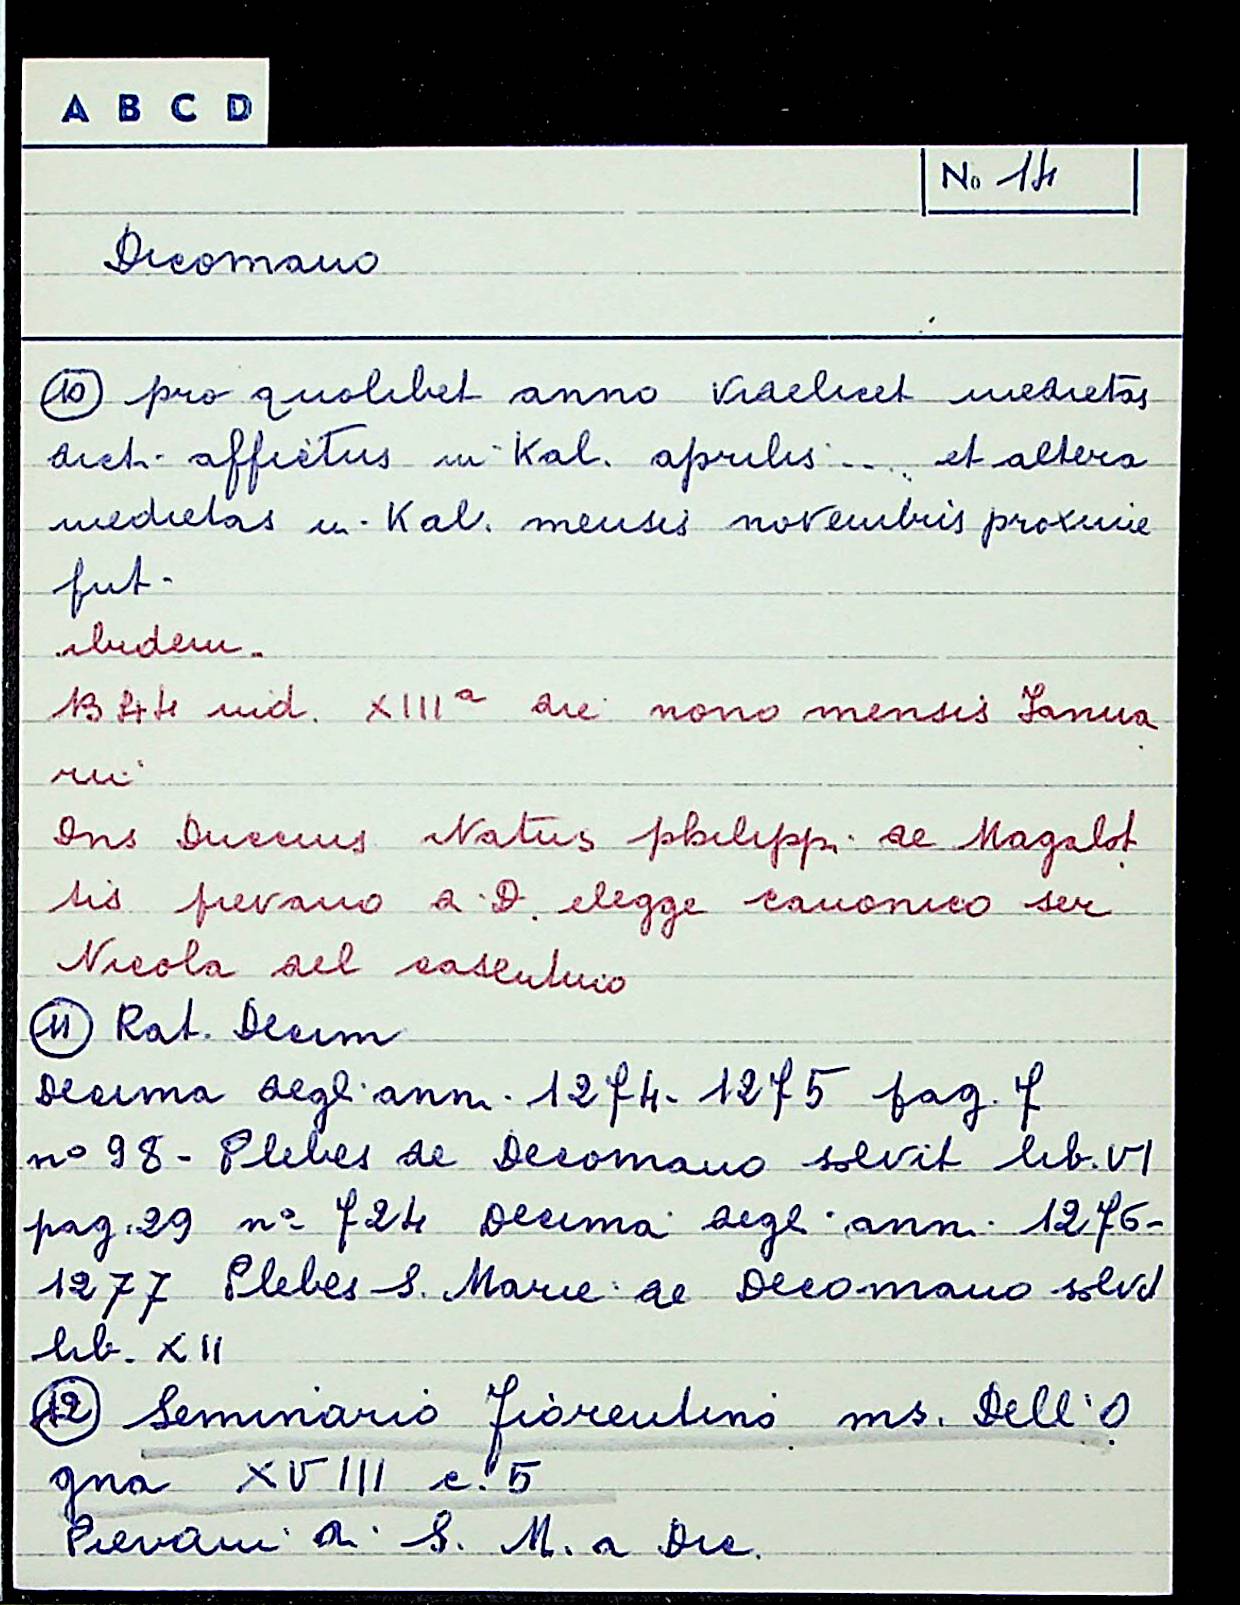 A B C D
No 14
Dicomano
10 pro quolibet anno videlicet medietas
dict. affictus in Kal. aprilis .... et altera
medietas in Kal. mensis novembris proxime
fut.
ibidem.
1344 ind. XIIIa die nono mensis Janua
rii
Dns Duccius Natus philippi de Magalot
tis pievano a D. elegge canonico ser
Nicola del casentino
11 Rat. Decim
Decima degli anni 1274-1275 pag. 7
no 98- Plebes de Decomano solvit lib. VI
pag. 29 no 724 Decima degli anni 1276-
1277 Plebes S. Marie de Decomano solvit
lib. XII
12 Seminario Fiorentino ms. Dell'O
gna XVIII c. 5
Pievani di S. M. a Dic.